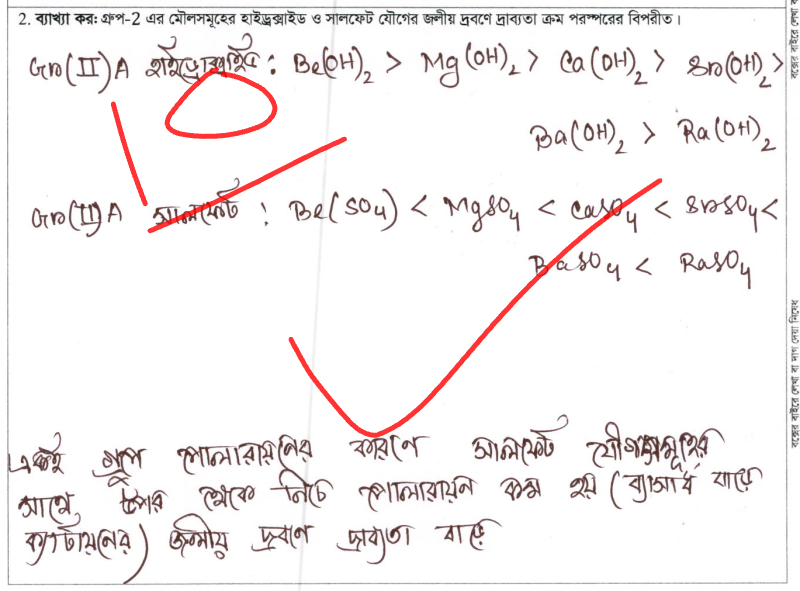 2. ব্যাখ্যা কর: গ্রুপ-2 এর মৌলসমূহের হাইড্রক্সাইড ও সালফেট যৌগের জলীয় দ্রবণে দ্রাব্যতা ক্রম পরস্পরের বিপরীত।
Gr(II)A হাইড্রোক্সাইড : Be(OH)₂ > Mg(OH)₂ > Ca(OH)₂ > Sr(OH)₂ >
Ba(OH)₂ > Ra(OH)₂
Gr(II)A সালফেট : Be(SO₄) < MgSO₄ < CaSO₄ < SrSO₄ <
BaSO₄ < RaSO₄
একই গ্রুপে পোলারায়নের কারণে সালফেট যৌগসমূহের
সাথে উপর থেকে নিচে পোলারায়ন কম হয় (ব্যাসার্ধ বারে
ক্যাটায়নের) জলীয় দ্রবণে দ্রাব্যতা বারে
বক্সের বাইরে লেখা বা দাগ দেয়া নিষেধ